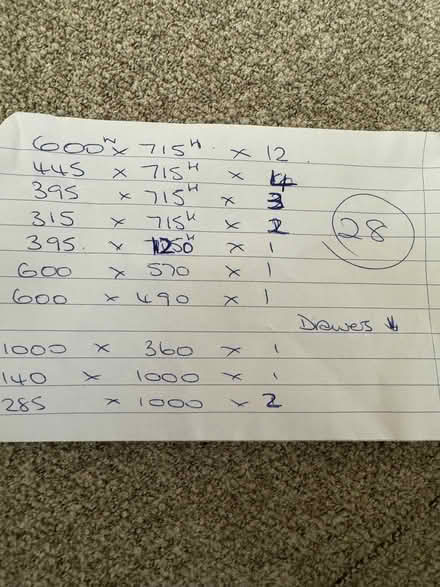 600ᵂ x 715ᴴ x 12
445 x 715ᴴ x 4
395 x 715ᴴ x 3
315 x 715ᴴ x 2
28
395. x 1250ᴴ x 1
600 x 570 x 1
600 x 490 x 1
Drawes ↓
1000 x 360 x 1
140 x 1000 x 1
285 x 1000 x 2